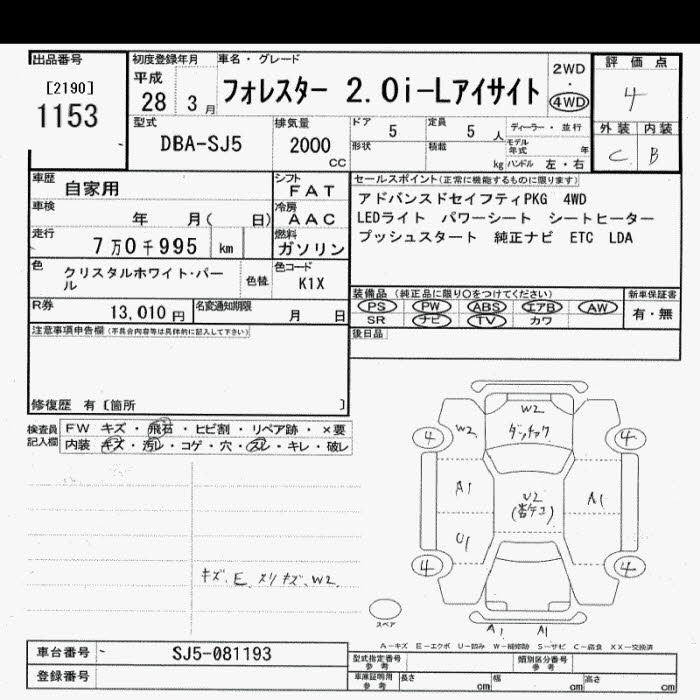 出品番号
[2190]
1153
初度登録年月
平成
28 3月
車名・グレード
フォレスター 2.0i-Lアイサイト
2WD
・
4WD
評価点
4
外装 内装
C B
型式
DBA-SJ5
排気量
2000
CC
ドア
5
定員
5 人
ディーラー・並行
形状
積載
kg
モデル年式 年
ハンドル 左・右
車歴
自家用
シフト
FAT
車検
年 月( 日)
冷房
AAC
走行
7万0千995 km
燃料
ガソリン
セールスポイント(正常に機能するものに限ります)
アドバンスドセイフティPKG 4WD
LEDライト パワーシート シートヒーター
プッシュスタート 純正ナビ ETC LDA
色
クリスタルホワイト・パール
色替
色コード
K1X
装備品(純正品に限り○をつけてください)
PS PW ABS エアB AW
SR ナビ TV カワ
新車保証書
有・無
R券
13,010 円
名変通知期限
月 日
後日品
注意事項申告欄(不具合内容等は具体的に記入して下さい)
修復歴 有〔箇所 〕
検査員
記入欄
FW キズ・飛石・ヒビ割・リペア跡・×要
内装 キズ・汚レ・コゲ・穴・スレ・キレ・破レ
W2
W2
4
4
A1
U2
A1
U1
4
4
キズ.E.スリキズ.W2.
スペア
A1 A1
A-キズ E-エクボ U-凹み W-補修跡 S-サビ C-腐食 XX-交換済
車台番号
SJ5-081193
登録番号
型式指定番号
参考
類別区分番号
参考
車庫証明用
参考
長さ cm
幅 cm
高さ cm